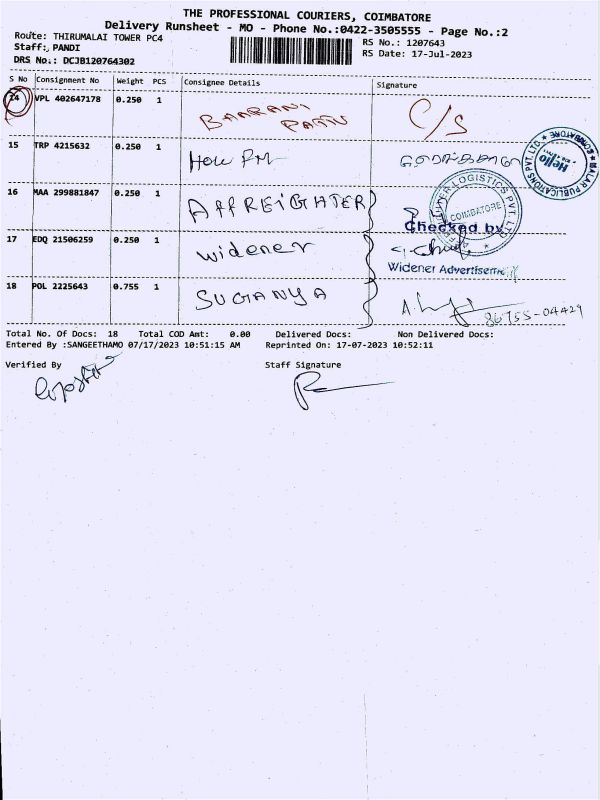 THE PROFESSIONAL COURIERS, COIMBATORE
Delivery Runsheet - MO - Phone No.:0422-3505555 - Page No.:2
Route: THIRUMALAI TOWER PC4
Staff:, PANDI
DRS No.: DCJB120764302
RS No.: 1207643
RS Date: 17-Jul-2023
S No Consignment No Weight PCS Consignee Details Signature
14 VPL 402647178 0.250 1 BAARANI C/S
15 TRP 4215632 0.250 1 Hello FM
16 MAA 299881847 0.250 1 AFFREIGHTER
17 EDQ 21506259 0.250 1 Widener
18 POL 2225643 0.755 1 SUGANYA
Hello
MALAR PUBLICATIONS PVT. LTD. * COIMBATORE *
LOGISTICS PVT. LTD
COIMBATORE
Checked by
Widener Advertisement
86755-04429
Total No. Of Docs: 18 Total COD Amt: 0.00 Delivered Docs: Non Delivered Docs:
Entered By :SANGEETHAMO 07/17/2023 10:51:15 AM Reprinted On: 17-07-2023 10:52:11
Verified By Staff Signature